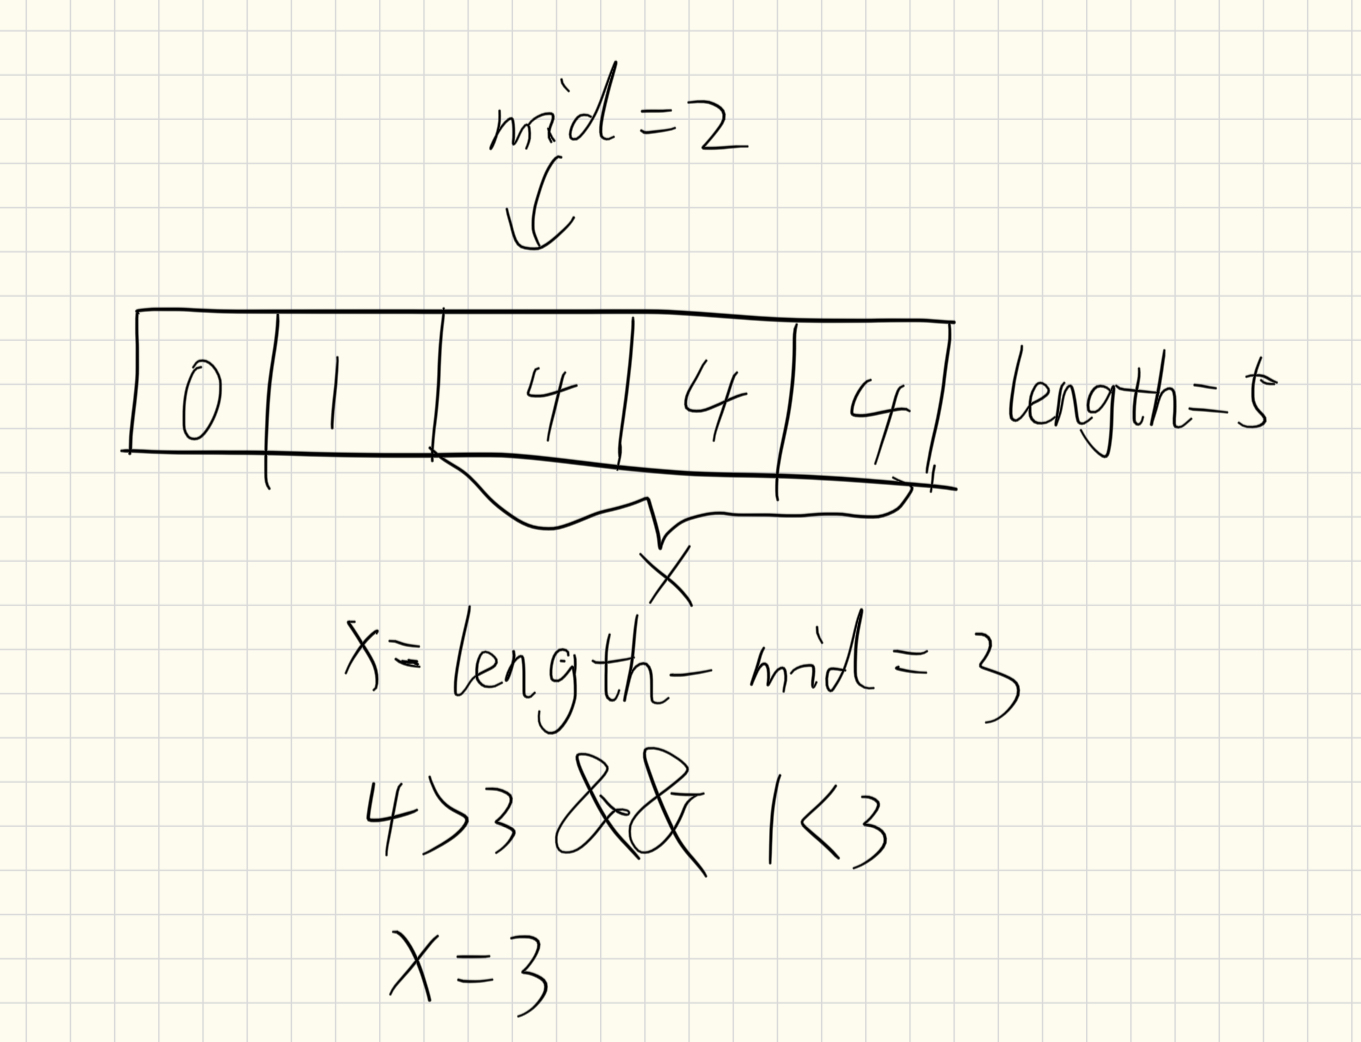 mid=2
0 1 4 4 4 length=5
X
X=length-mid=3
4>3 && 1<3
X=3